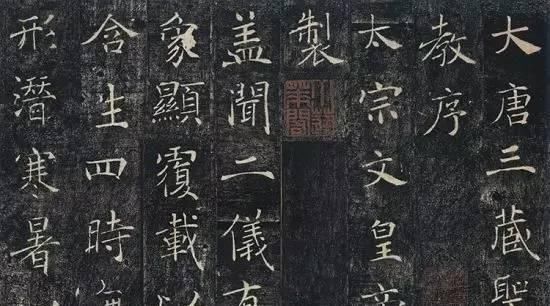 大唐三藏聖
教序
太宗文皇帝
製
盖聞二儀有
象顯覆載以
含生四時無
形潛寒暑